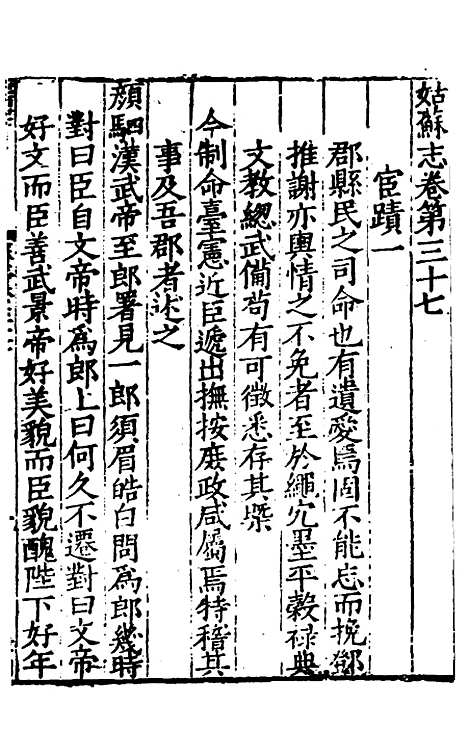 姑蘇志卷第三十七
宦蹟一
郡縣民之司命也有遺愛焉固不能忘而挽鄧
推謝亦輿情之不免者至於繩宄墨平穀祿典
文教總武備苟有可徵悉存其槩
今制命臺憲近臣遞出撫按庶政咸屬焉特稽其
事及吾郡者述之
顔駟漢武帝至郎署見一郎須眉皓白問爲郎幾時
對曰臣自文帝時爲郎上曰何久不遷對曰文帝
好文而臣善武景帝好美貌而臣貌醜陛下好年